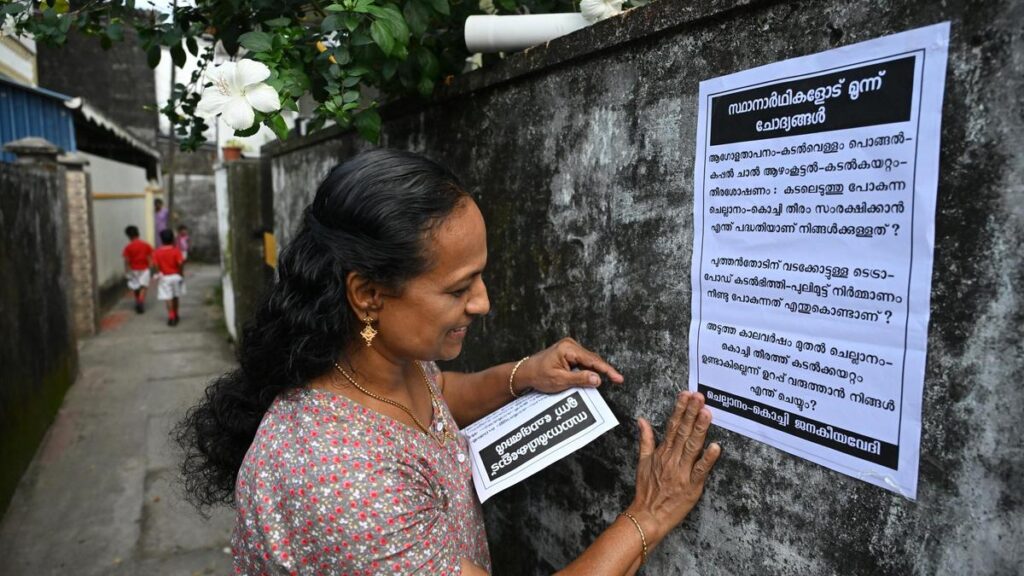 സ്ഥാനാർഥികളോട് മൂന്ന്
ചോദ്യങ്ങൾ
ആഗോളതാപനം-കടൽവെള്ളം പൊങ്ങൽ-
കപ്പൽ ചാൽ ആഴംകൂട്ടൽ-കടൽകയറ്റം-
തീരശോഷണം : കടലെടുത്തു പോകുന്ന
ചെല്ലാനം-കൊച്ചി തീരം സംരക്ഷിക്കാൻ
എന്ത് പദ്ധതിയാണ് നിങ്ങൾക്കുള്ളത് ?
പുത്തൻതോടിന് വടക്കോട്ടുള്ള ടെട്രാ-
പോഡ് കടൽഭിത്തി-പുലിമുട്ട് നിർമ്മാണം
നീണ്ടു പോകുന്നത് എന്തുകൊണ്ടാണ് ?
അടുത്ത കാലവർഷം മുതൽ ചെല്ലാനം-
കൊച്ചി തീരത്ത് കടൽക്കയറ്റം
ഉണ്ടാകില്ലെന്ന് ഉറപ്പ് വരുത്താൻ നിങ്ങൾ
എന്ത് ചെയ്യും?
ചെല്ലാനം-കൊച്ചി ജനകീയവേദി
സ്ഥാനാർഥികളോട്
മൂന്ന് ചോദ്യങ്ങൾ